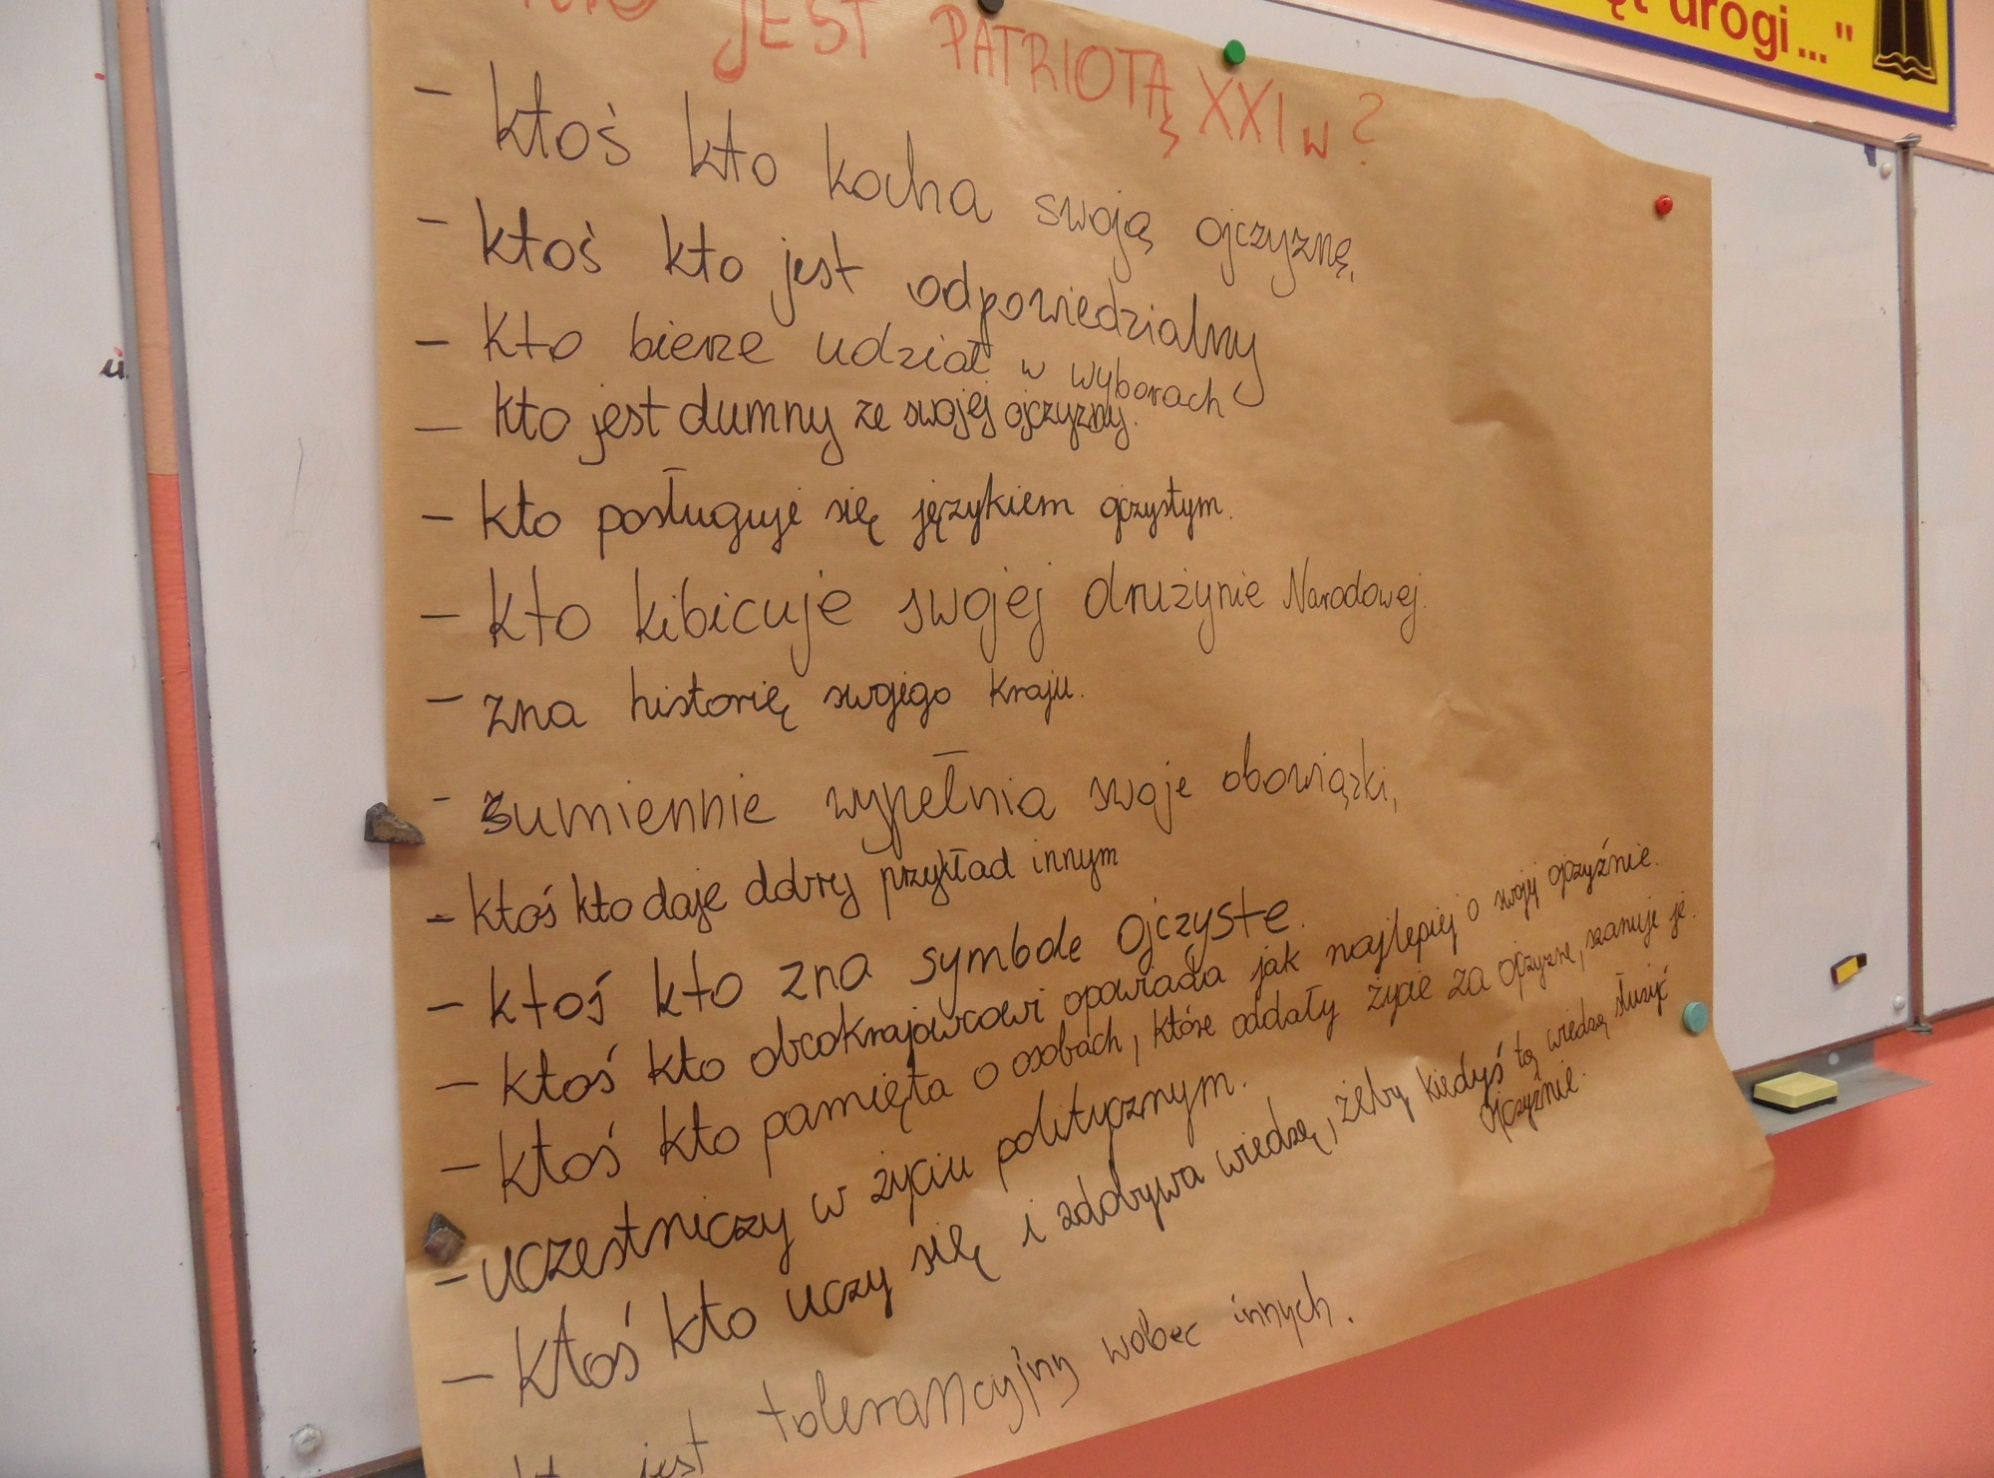 drogi..."
JEST PATRIOTĄ XXI w?
- ktoś kto kocha swoją ojczyznę,
- ktoś kto jest odpowiedzialny
- kto bierze udział w wyborach
- kto jest dumny ze swojej ojczyzny.
- kto posługuje się językiem ojczystym.
- kto kibicuje swojej drużynie Narodowej.
- zna historię swojego kraju.
- sumiennie wypełnia swoje obowiązki,
- ktoś kto daje dobry przykład innym
- ktoś kto zna symbole Ojczyste.
- ktoś kto obcokrajowcowi opowiada jak najlepiej o swojej ojczyźnie.
- ktoś kto pamięta o osobach, które oddały życie za ojczyznę, szanuje je.
- uczestniczy w życiu politycznym.
- ktoś kto uczy się i zdobywa wiedzę, żeby kiedyś tą wiedzą służyć
ojczyźnie.
jest tolerancyjny wobec innych.